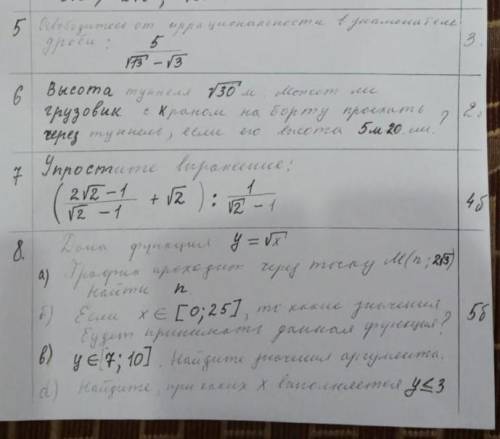 5 Освободитесь от иррациональности в знаменателе
дроби: 5/(√13 − √3) 3.
6 Высота туннеля √30 м. Может ли
грузовик с краном на борту проехать
через туннель, если его высота 5м 20 см. ? 2б
7 Упростите выражение:
((2√2 − 1)/(√2 − 1) + √2) : 1/(√2 − 1) 4б
8. Дана функция y = √x
а) График проходит через точку M(n; 2√3)
Найти n
б) Если x ∈ [0; 25], то какие значения
будет принимать данная функция? 5б
в) y ∈ [7; 10]. Найдите значения аргумента.
d) Найдите, при каких x выполняется y ≤ 3